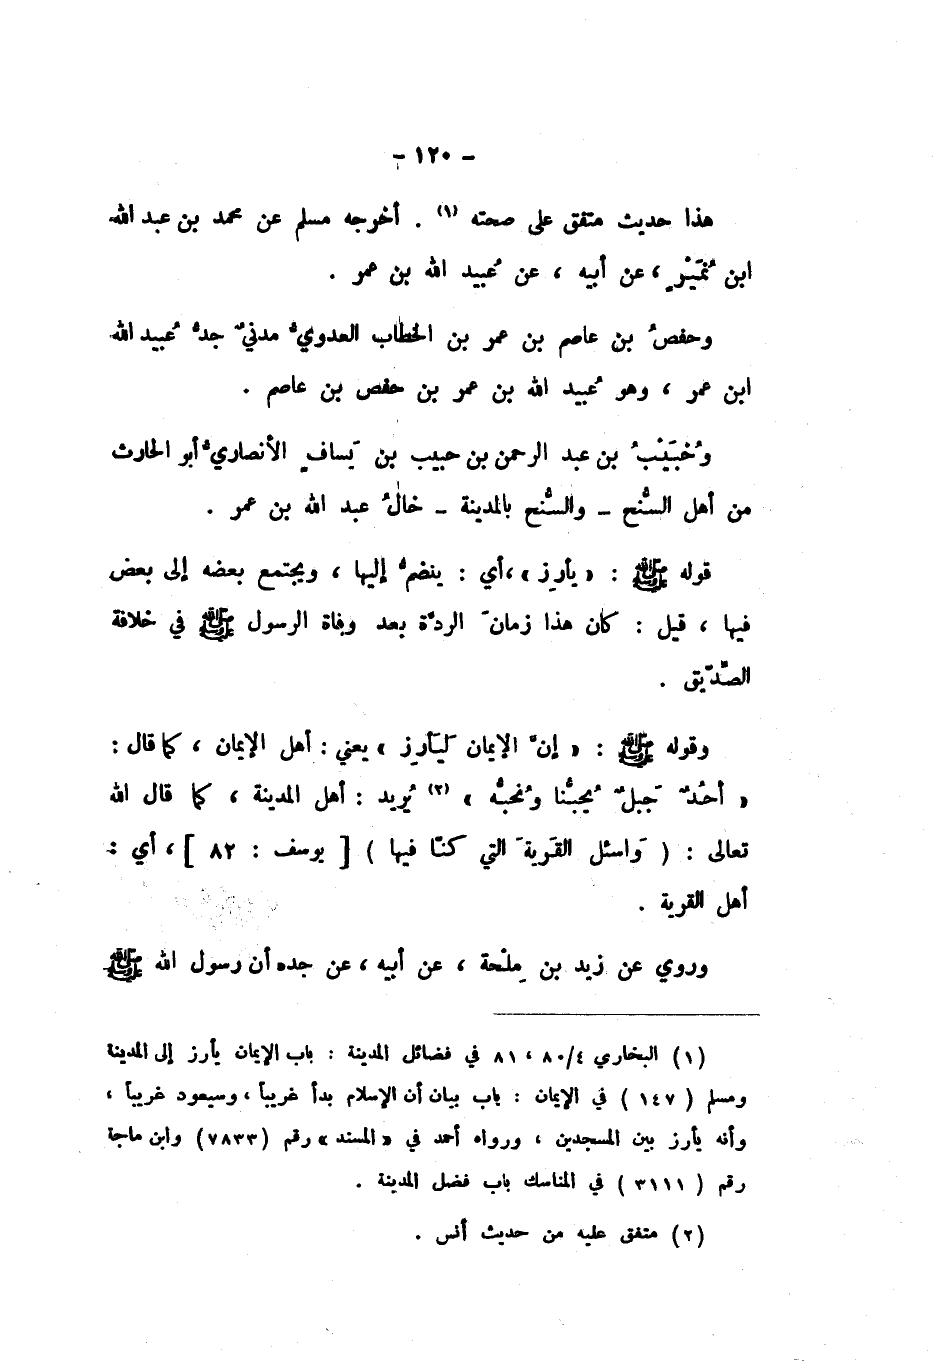 - ١٢٠ -
هذا حديث متفق على صحته (١) . أخرجه مسلم عن محمد بن عبد الله
ابن نُمَيْرٍ ، عن أبيه ، عن عُبيد الله بن عمر .
وحفصُ بن عاصم بن عمر بن الخطاب العدويُّ مدنيٌّ جدُّ عُبيد الله
ابن عمر ، وهو عُبيد الله بن عمر بن حفص بن عاصم .
وخُبَيْبُ بن عبد الرحمن بن حبيب بن يَسافٍ الأنصاريُّ أبو الحارث
من أهل السُّنح – والسُّنح بالمدينة – خالُ عبد الله بن عمر .
قوله ﷺ : « يأرِز » ، أي : ينضمُّ إليها ، ويجتمع بعضه إلى بعض
فيها ، قيل : كان هذا زمانَ الردَّة بعد وفاة الرسول ﷺ في خلافة
الصِّدِّيق .
وقوله ﷺ : « إنَّ الإيمان لَيَأرِز » يعني : أهل الإيمان ، كما قال :
« أحُدٌ جَبلٌ يُحِبُّنا ونُحبُّه » (٢) يُريد : أهل المدينة ، كما قال الله
تعالى : ( وَاسئل القَريةَ التي كنَّا فيها ) [ يوسف : ٨٢ ] ، أي :
أهل القرية .
وروي عن زيد بن مِلْحة ، عن أبيه ، عن جده أن رسول الله ﷺ
(١) البخاري ٨٠/٤ ، ٨١ في فضائل المدينة : باب الإيمان يأرز إلى المدينة
ومسلم ( ١٤٧ ) في الإيمان : باب بيان أن الإسلام بدأ غريباً ، وسيعود غريباً ،
وأنه يأرز بين المسجدين ، ورواه أحمد في « المسند » رقم (٧٨٣٣) وابن ماجة
رقم ( ٣١١١ ) في المناسك باب فضل المدينة .
(٢) متفق عليه من حديث أنس .